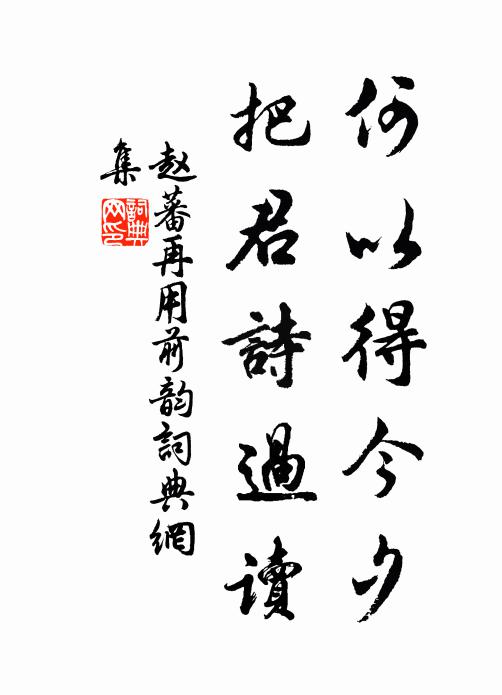 何以得今夕
把君詩過讀
赵蕃再用前韵詞典網
集
詞典
网印